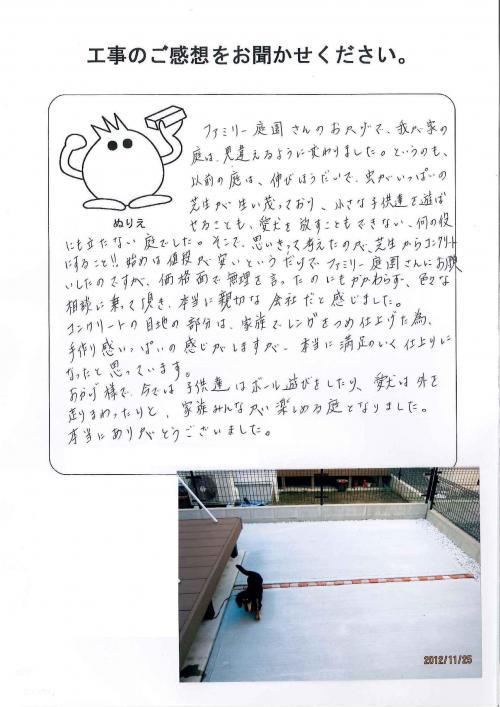 工事のご感想をお聞かせください。
ファミリー庭園さんのおかげで、我が家の
庭は、見違えるように変わりました。というのも、
以前の庭は、伸びほうだいで、虫がいっぱいの
芝生が生い茂っており、小さな子供達を遊ば
せることも、愛犬を放すこともできない、何の役
ぬりえ
にも立たない庭でした。そこで、思いきって考えたのが、芝生からコンクリート
にすること!! 始めは値段が安いというだけで、ファミリー庭園さんにお願
いしたのですが、価格面で無理を言ったのにもかかわらず、色々な
相談に乗って頂き、本当に親切な会社だと感じました。
コンクリートの目地の部分は、家族でレンガをつめ仕上げた為、
手作り感いっぱいの感じがしますが、本当に満足のいく仕上りに
なったと思っています。
おかげ様で、今では子供達はボール遊びをしたり、愛犬は外を
走りまわったりと、家族みんなが楽しめる庭となりました。
本当にありがとうございました。
2012/11/25